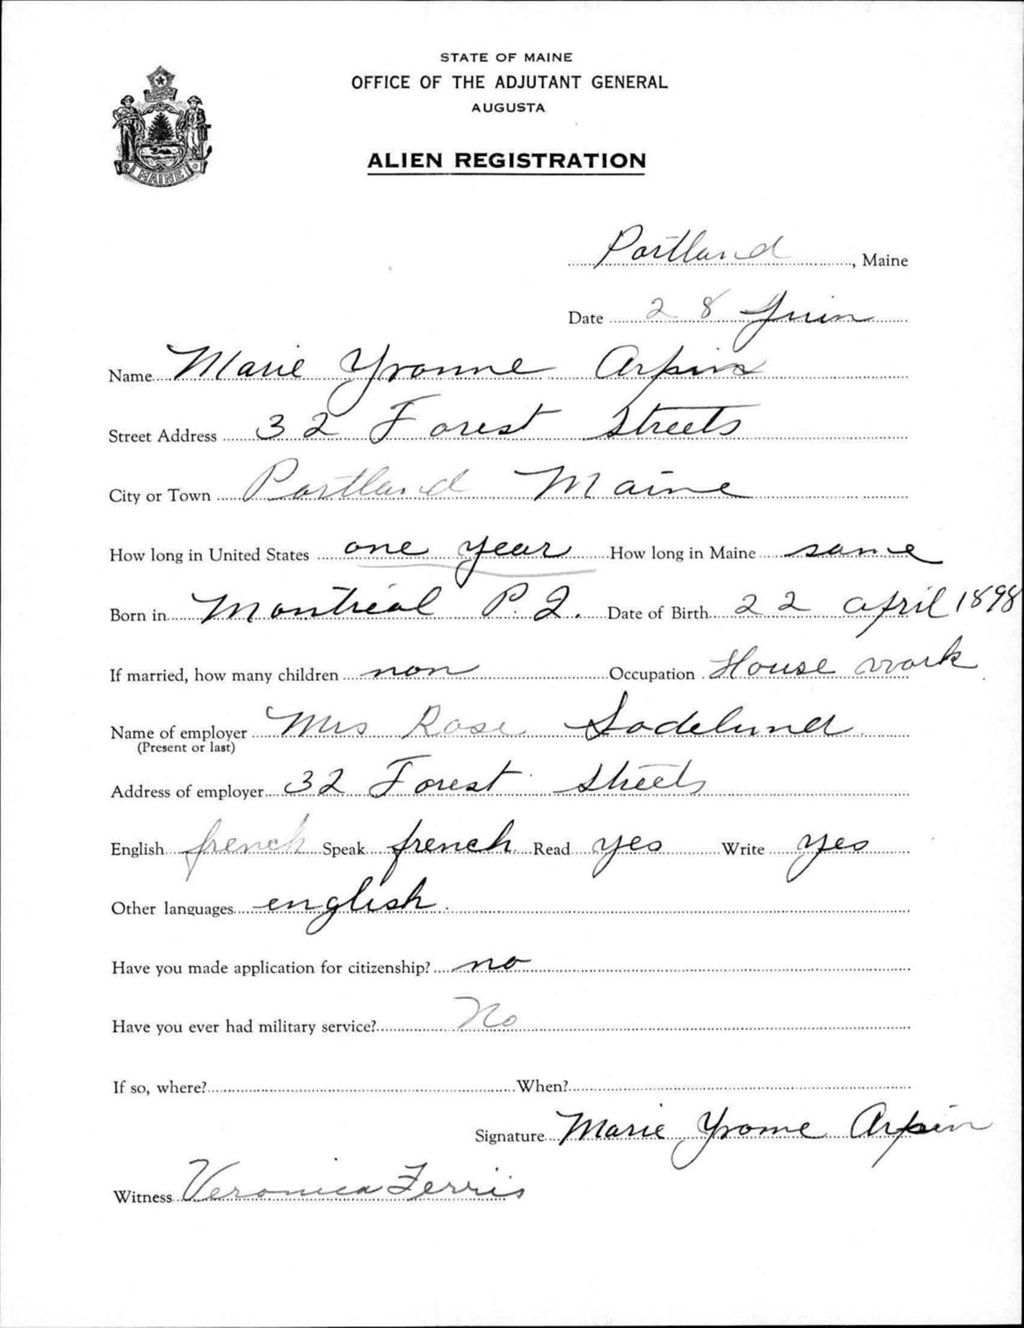 STATE OF MAINE
OFFICE OF THE ADJUTANT GENERAL
AUGUSTA
ALIEN REGISTRATION
MAINE
Portland, Maine
Date 28 Juin
Name Marie Yvonne Arpin
Street Address 32 Forest Streets
City or Town Portland Maine
How long in United States one year How long in Maine same
Born in Montreal P.Q. Date of Birth 22 april 1898
If married, how many children non Occupation House work
Name of employer Mrs Rose Sodelund
(Present or last)
Address of employer 32 Forest Streets
English french Speak french Read yes Write yes
Other languages english.
Have you made application for citizenship? no
Have you ever had military service? No
If so, where? When?
Signature Marie Yvonne Arpin
Witness Veronica Ferris